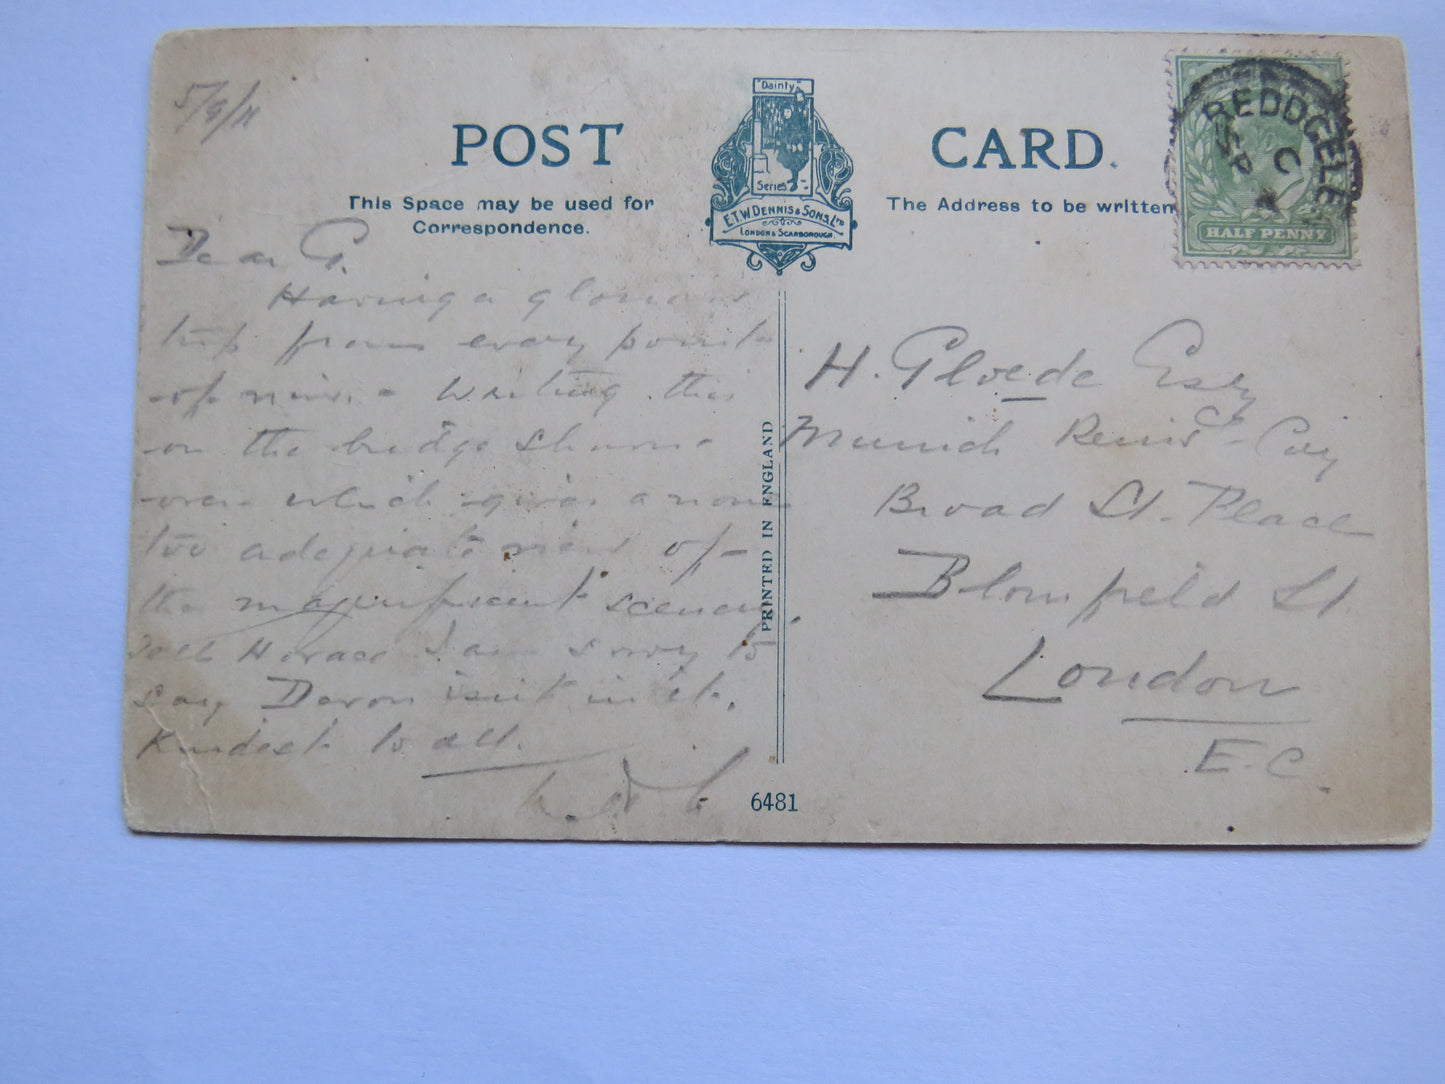 5/9/11
POST CARD.
"Dainty"
Series
E.T.W. DENNIS & SONS, LTD
LONDON & SCARBOROUGH.
This Space may be used for
Correspondence.
The Address to be written
BEDDGELE
SP
C
HALF PENNY
Dear G.
Having a glorious
trip from every point
of view. Writing this
on the bridge shown
over which gives a none
too adequate view of
the magnificent scenery.
Tell Horace I am sorry to
say Devon isn't in it.
Kindest to all.
PRINTED IN ENGLAND
6481
H. Gloede Esq
Munich Reins ce Coy
Broad St. Place
Blomfield St
London
E.C.